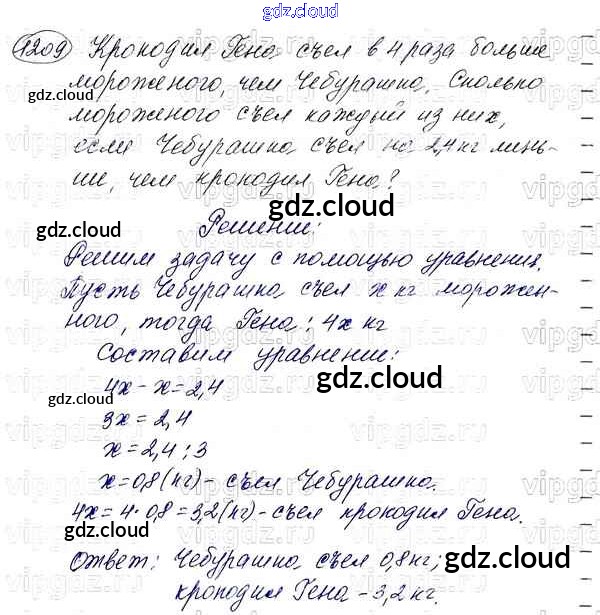 gdz.cloud
1209 Крокодил Гена съел в 4 раза больше
мороженого, чем Чебурашка. Сколько
gdz.cloud
мороженого съел каждый из них,
если Чебурашка съел на 2,4 кг мень-
ше, чем крокодил Гена?
gdz.cloud
Решение:
gdz.cloud
Решим задачу с помощью уравнения.
Пусть Чебурашка съел x кг морожен-
ного, тогда Гена: 4x кг
Составим уравнение:
gdz.cloud
4x - x = 2,4
gdz.cloud
3x = 2,4
x = 2,4 : 3
x = 0,8 (кг) - съел Чебурашка.
gdz.cloud
4x = 4 · 0,8 = 3,2 (кг) - съел крокодил Гена.
gdz.cloud
Ответ: Чебурашка съел 0,8 кг;
gdz.cloud
крокодил Гена - 3,2 кг.